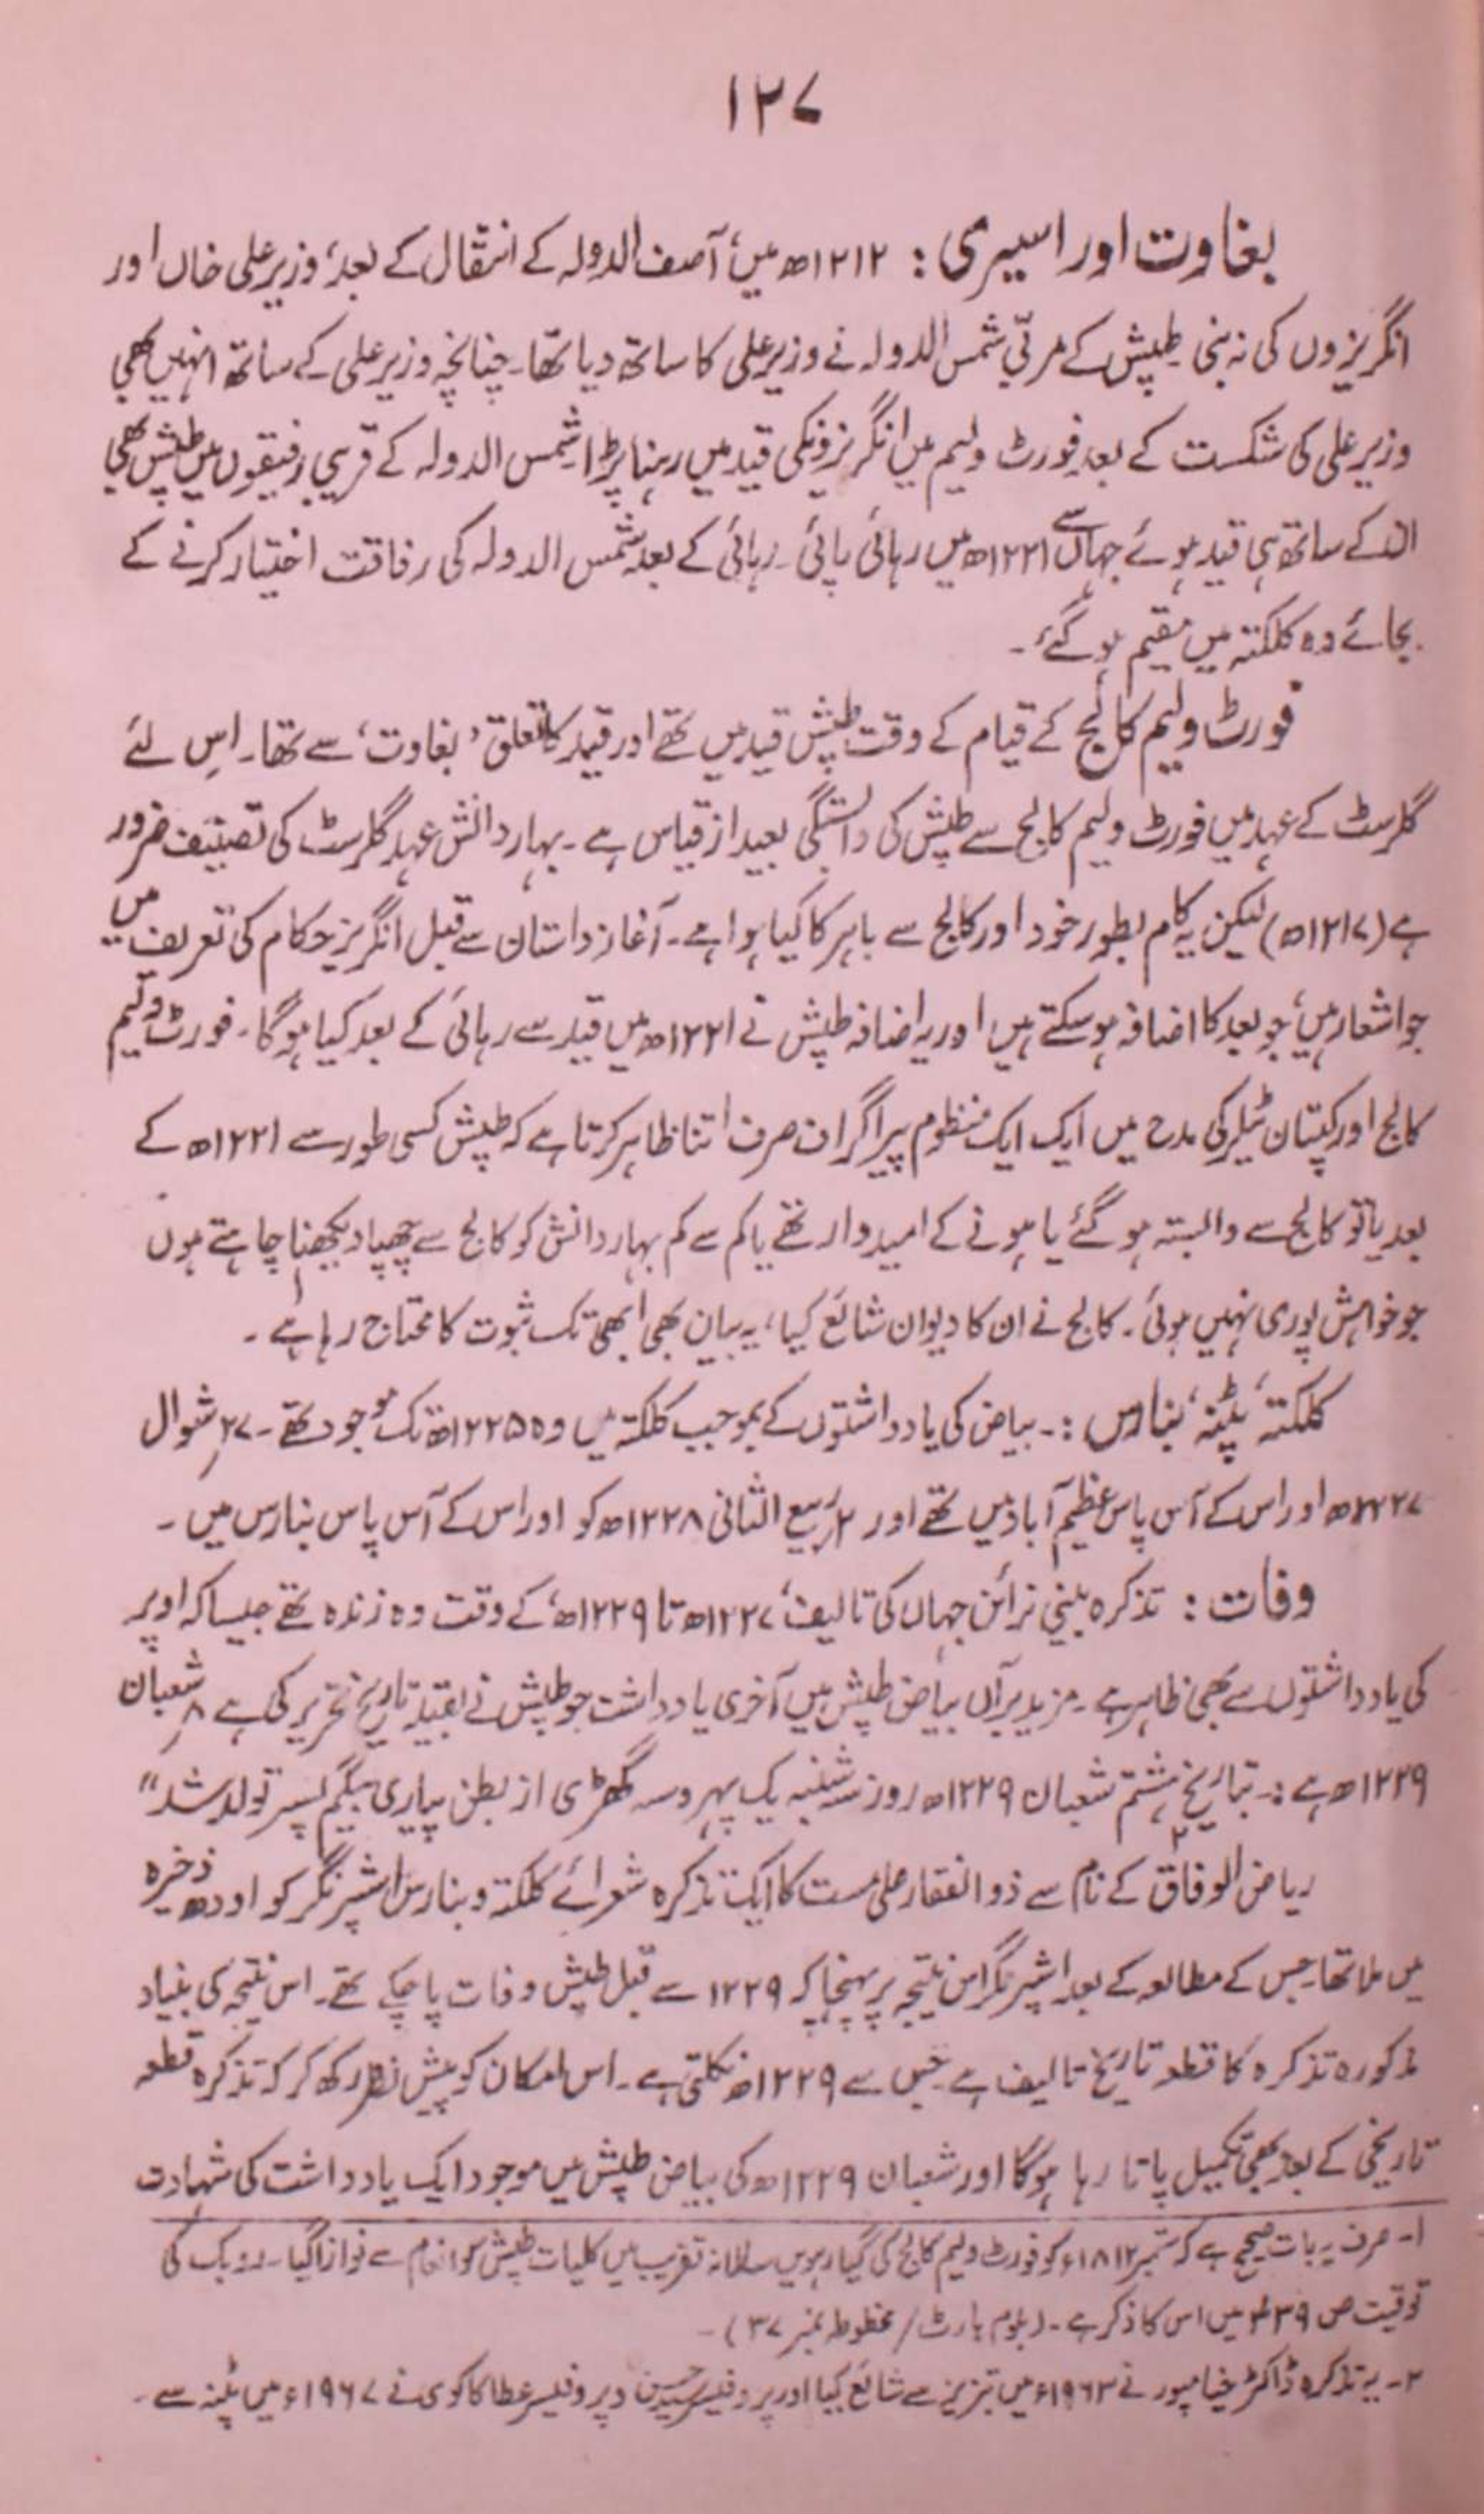 ۱۲۷
بغاوت اور اسیری : ۱۲۱۲ھ میں، آصف الدولہ کے انتقال کے بعد، وزیر علی خاں اور
انگریزوں کی نہ بنی طپش کے مربّی شمس الدولہ نے وزیر علی کا ساتھ دیا تھا۔ چنانچہ وزیر علی کے ساتھ انہیں بھی
وزیر علی کی شکست کے بعد فورٹ ولیم میں انگریزوں کی قید میں رہنا پڑا شمس الدولہ کے قریبی رفیقوں میں طپش بھی
ان کے ساتھ ہی قید ہوئے جہاں سے ۱۲۲۱ھ میں رہائی پائی۔ رہائی کے بعد شمس الدولہ کی رفاقت اختیار کرنے کے
بجائے وہ کلکتہ میں مقیم ہو گئے۔
فورٹ ولیم کالج کے قیام کے وقت طپش قید میں تھے اور قید کا تعلق ’بغاوت‘ سے تھا۔ اس لئے
گلرسٹ کے عہد میں فورٹ ولیم کالج سے طپش کی وابستگی بعید از قیاس ہے۔ بہار دانش عہد گلرسٹ کی تصنیف ضرور
ہے (۱۲۱۷ھ) لیکن یہ کام بطور خود اور کالج سے باہر کا کیا ہوا ہے۔ آغاز داستان سے قبل انگریز حکام کی تعریف میں
جو اشعار ہیں، جو بعد کا اضافہ ہو سکتے ہیں اور یہ اضافہ طپش نے ۱۲۲۱ھ میں قید سے رہائی کے بعد کیا ہوگا۔ فورٹ ولیم
کالج اور کپتان ٹیلر کی مدح میں ایک ایک منظوم پیراگراف صرف اتنا ظاہر کرتا ہے کہ طپش کسی طور سے ۱۲۲۱ھ کے
بعد یا تو کالج سے وابستہ ہو گئے یا ہونے کے امیدوار تھے یا کم سے کم بہار دانش کو کالج سے چھپا دیکھنا چاہتے ہوں
جو خواہش پوری نہیں ہوئی۔ کالج نے ان کا دیوان شائع کیا، یہ بیان بھی ابھی تک ثبوت کا محتاج رہا ہے۱۔
کلکتہ، پٹنہ، بنارس :۔ بیاض کی یادداشتوں کے بموجب کلکتہ میں وہ ۱۲۲۵ھ تک موجود تھے۔ ۲۷؍ شوال
۱۲۲۷ھ اور اس کے آس پاس عظیم آباد میں تھے اور ۲؍ ربیع الثانی ۱۲۲۸ھ کو اور اس کے آس پاس بنارس میں۔
وفات : تذکرہ بینی نرائن جہاں کی تالیف، ۱۲۲۷ھ تا ۱۲۲۹ھ، کے وقت وہ زندہ تھے جیسا کہ اوپر
کی یادداشتوں سے بھی ظاہر ہے۔ مزید برآں بیاض طپش میں آخری یادداشت جو طپش نے بقید تاریخ تحریر کی ہے ۸؍ شعبان
۱۲۲۹ھ ہے :۔ بتاریخ ہشتم شعبان ۱۲۲۹ھ روز سہ شنبہ یک پہر و سہ گھڑی از بطن پیاری بیگم پسر تولد شد“
ریاض الوفاق۲ کے نام سے ذوالفقار علی مست کا ایک تذکرہ شعرائے کلکتہ و بنارس اشپرنگر کو اودھ ذخیرہ
میں ملا تھا۔ جس کے مطالعہ کے بعد اشپرنگر اس نتیجہ پر پہنچا کہ ۱۲۲۹ سے قبل طپش وفات پا چکے تھے۔ اس نتیجہ کی بنیاد
مذکورہ تذکرہ کا قطعہ تاریخ تالیف ہے جس سے ۱۲۲۹ھ نکلتی ہے۔ اس امکان کو پیش نظر رکھ کر کہ تذکرہ قطعہ
تاریخی کے بعد بھی تکمیل پاتا رہا ہوگا اور شعبان ۱۲۲۹ھ کی بیاض طپش میں موجود ایک یادداشت کی شہادت
۱۔ صرف یہ بات صحیح ہے کہ ستمبر ۱۸۱۲ء کو فورٹ ولیم کالج کی گیارہویں سالانہ تقریب میں کلیات طپش کو انعام سے نوازا گیا۔ روبک کی
توقیت ص ۳۳۹ میں اس کا ذکر ہے۔ (بلوم ہارٹ/ مخطوطہ نمبر ۳۷)۔
۲۔ یہ تذکرہ ڈاکٹر خیامپور نے ۱۹۶۳ء میں تبریز سے شائع کیا اور پروفیسر سید حسن و پروفیسر عطا کاکوی نے ۱۹۶۷ء میں پٹنہ سے۔